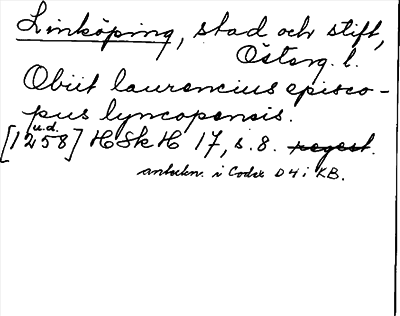 Linköping, stad och stift,
Österg. l.
Obiit laurencius episco-
pus lyncopensis.
u.d.
[1258] HSkH 17, s. 8. regest.
anteckn. i Codex D4 i KB.